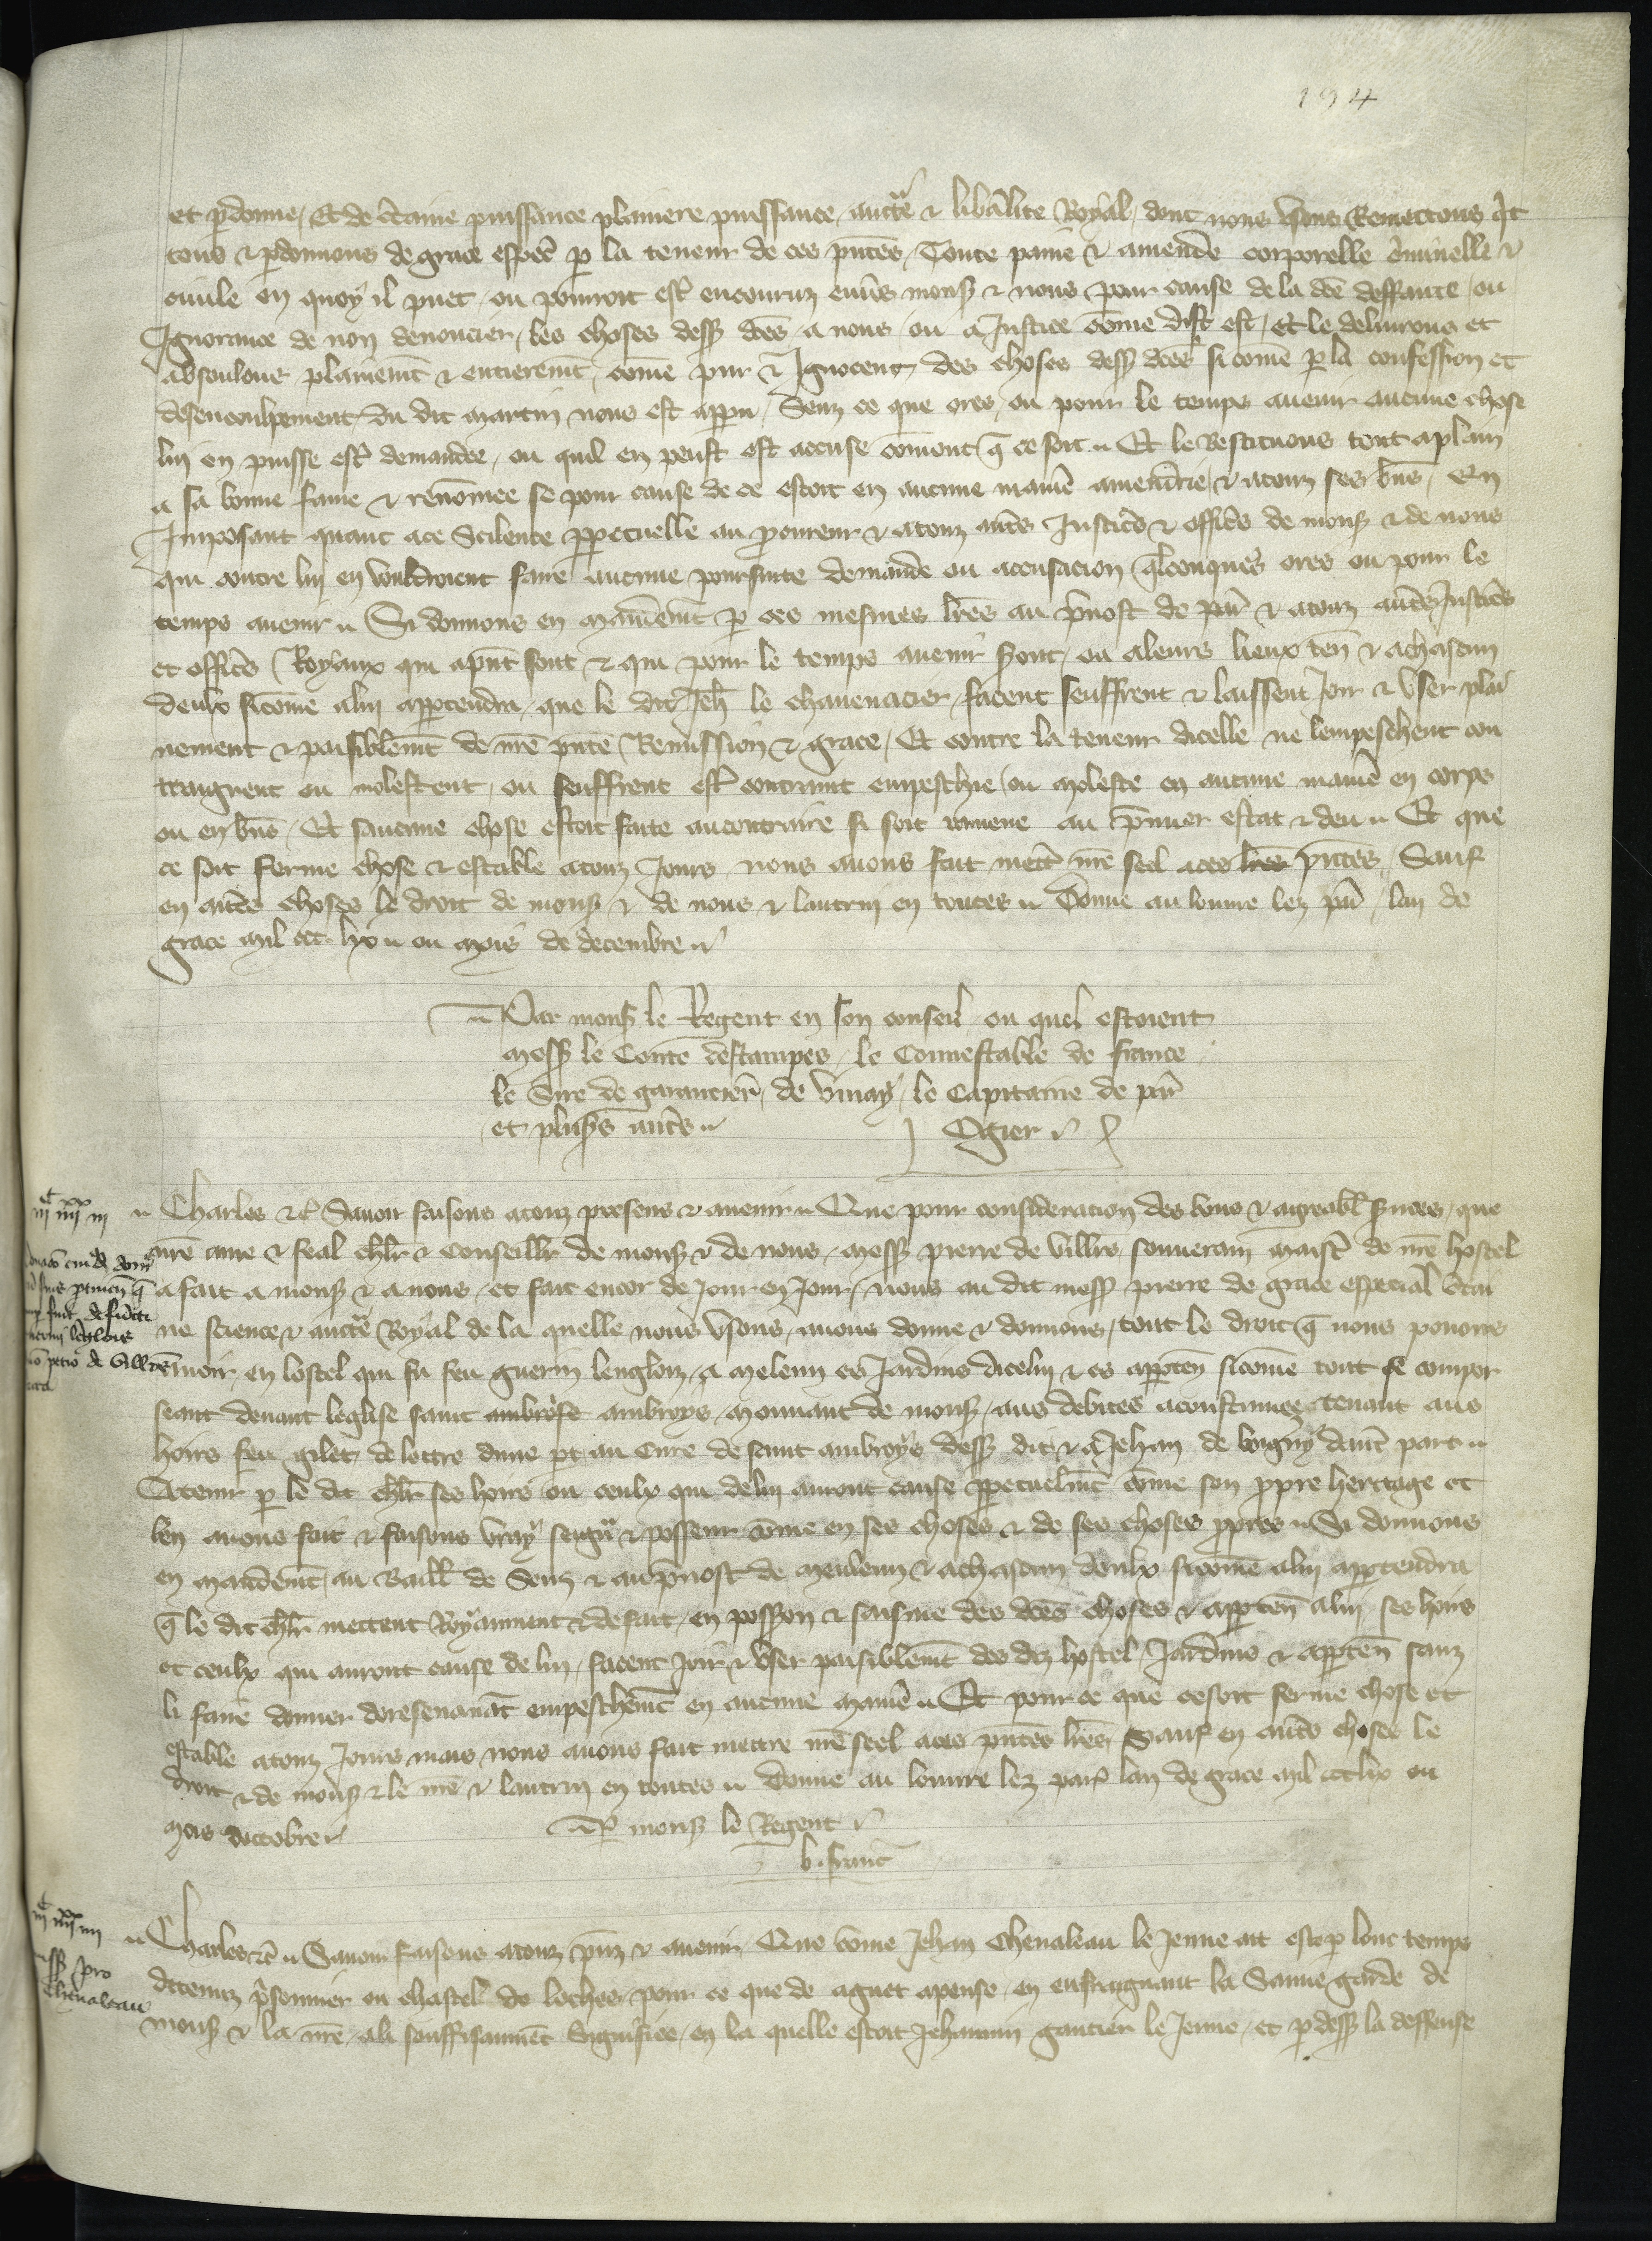 194
et pdonne, Et de ctaine puissance plainiere puissance, auctte & libalite Royal, dont nous usons Remettons qit
tons & pdonnons de grace especl p la teneur de ces pntes, Toute paine & amende corporelle cminelle &
civile en quoy il puet, ou pourroit estre encouruz envs mons & nous pour cause de la dce deffaute, ou
Ignorance de non denoncier, les choses dess dces a nous, ou a Justice come dist est, Et le delivrons et
absoulons plainemt & entieremt, come pur & Ignocent, des choses dess dces, si come p la confession et
desencoulpement du dit martin nous est appu, Senz ce que ores, ou pour le temps avenir aucune chose
lui en puisse estre demandee, ou quil en peust est accuse coment q ce soit. Et le Restituons tout a plain
a sa bonne fame & renomee se pour cause de ce estoit en aucune manie amenuscie, & a touz ses bns, En
Imposant quant a ce Scilence ppetuelle au procureur & a touz autres Justics & offics de mons & de nous
qui contre lui en vouldroient faire aucune poursuite demande ou accusacion qlconques ores ou pour le
temps avenir. Si donnons en mandemt p ces mesmes lres au pvost de par & a touz autres Justics
et offics Royaux qui a pnt sont & qui pour le temps avenir sont, ou a leurs lieux ten & a chascun
deulx sicome a lui apptendra, que le dit Jeh le chavenacier facent seuffrent & laissent Joir & user plai
nement & paisiblemt de nre pnte Remission & grace, Et contre la teneur dicelle ne lempeschent con
traignent ou molestent, ou seuffrent estre contraint empeschie, ou moleste en aucune manie en corps
ou en bns, Et saucune chose estoit faite au contraire si soit ramene au pmier estat & deu. Et que
ce soit ferme chose & estable a touz Jours nous avons fait mett nre seel a ces lres pntes, Sauf
en autres choses le droit de mons & de nous & lautrui en toutes. Donne au louvre lez par, lan de
grace mil ccc. lx. ou mois de decembre.
Par mons le Regent en son conseil ou quel estoient
mess le Conte destampes, le Connestable de france
le Sire de garancier, de vinay, le Capitaine de par
et plusrs autres. Ogier
iijc iiijxx iij
Charles &c Savoir faisons a touz presens & avenir. Que pour consideracion des bons & agreabl svices, que
nre ame & feal chlr & Conseillr de mons & de nous, mess pierre de villrs, souverain maistre de nre hostel
a fait a mons & a nous, et fait encor de Jour en Jour, nous au dit mess pierre de grace especial ctai
ne science & auctte Royal de la quelle nous usons, avons donne & donnons, tout le droit q nous povons
avoir, en lostel qui fu feu guerin lenglois, a meleun es Jardins dicelui & es apptenn sicome tout se compor
seant devant leglise saint ambrose ambroys, mouvant de mons, aus debites acoustumez, tenant aus
hoirs feu gilet de lottre dune pt au Cure de saint ambroys dess dit & a Jehan de boigny dautre part.
A tenir p le dit chlr ses hoirs ou ceulx qui de lui auront cause ppetuelmt come son ppre heritage et
len avons fait & faisons vray seigr & posseur come en ses choses & de ses choses ppres. Si donnons
en mandemt, au Baill de Sens & au pvost de meleun & a chascun deulx sicome a lui apptendra
q le dit chlr mettent Royaument & de fait, en possion & saisine des dces choses & apptenn a lui, ses hoirs
et ceulx qui auront cause de lui, facent Joir & user paisiblemt des diz hostel, Jardins & apptenn sanz
li faire donner doresenavat empeschemt en aucune manie. Et pour ce que ce soit ferme chose et
estable a touz Jours mais nous avons fait mettre nre seel a ces pntes lres, Sauf en autres choses le
droit & de mons & le nre & lautrui en toutes. Donne au louvre lez par lan de grace mil ccc lx ou
mois doctobre. P mons le Regent
b. franc
iijc iiijxx iiij
Charles &c. Savoir faisons a touz pns & avenir, Que come Jehan Chevaleau le Jenne ait este p lonc temps
detenuz psonnier ou chastel de loches, pour ce que de aguet apense, en enfraignant la Sauvegarde de
mons & la nre, a li souffisaumet Signifiee, en la quelle estoit Jehannin gautier le Jenne, et p dess la deffense
pro
Chevaleau